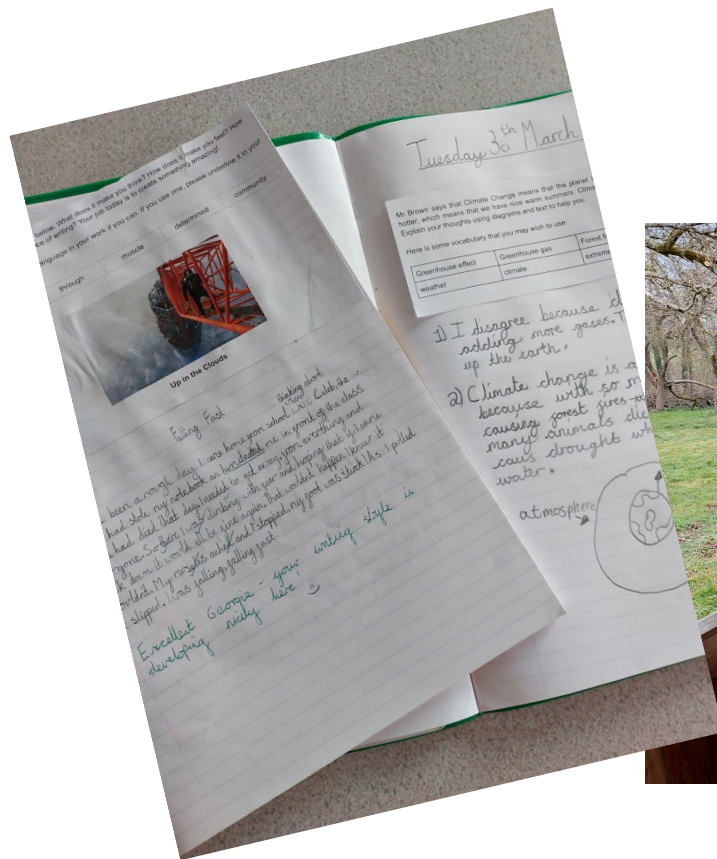 below. What does it make you think? How does it make you feel? How
ce of writing? Your job today is to create something amazing!
anguage in your work if you can. If you use one, please underline it in your
through muscle determined community
Up in the Clouds
Falling Fast
thinking about
been a rough day, I came home from school Caleb, the
had stole my notebook an humiliated me in front of the class
had died that day. I needed to get away from everthing and
yone. So here I was climbing with fear and hoping that if I came
k down it would all be fine again, that wouldn't happen I knew it
ouldnt. My muscles ached and I stopped, my foot was stuck! As I pulled
slipped. I was falling, falling fast.
Excellent Georgie - your writing style is
developing nicely here!
Tuesday 30th March
Mr Brown says that Climate Change means that the planet
hotter, which means that we have nice warm summers. Clima
Explain your thoughts using diagrams and text to help you.
Here is some vocabulary that you may wish to use:
Greenhouse effect Greenhouse gas Forest
weather climate extreme
1) I disagree because
adding more gases. T
up the earth.
2) Climate change is a
because with so m
causing forest fires
many animals die
caus drought wh
water.
atmosphere